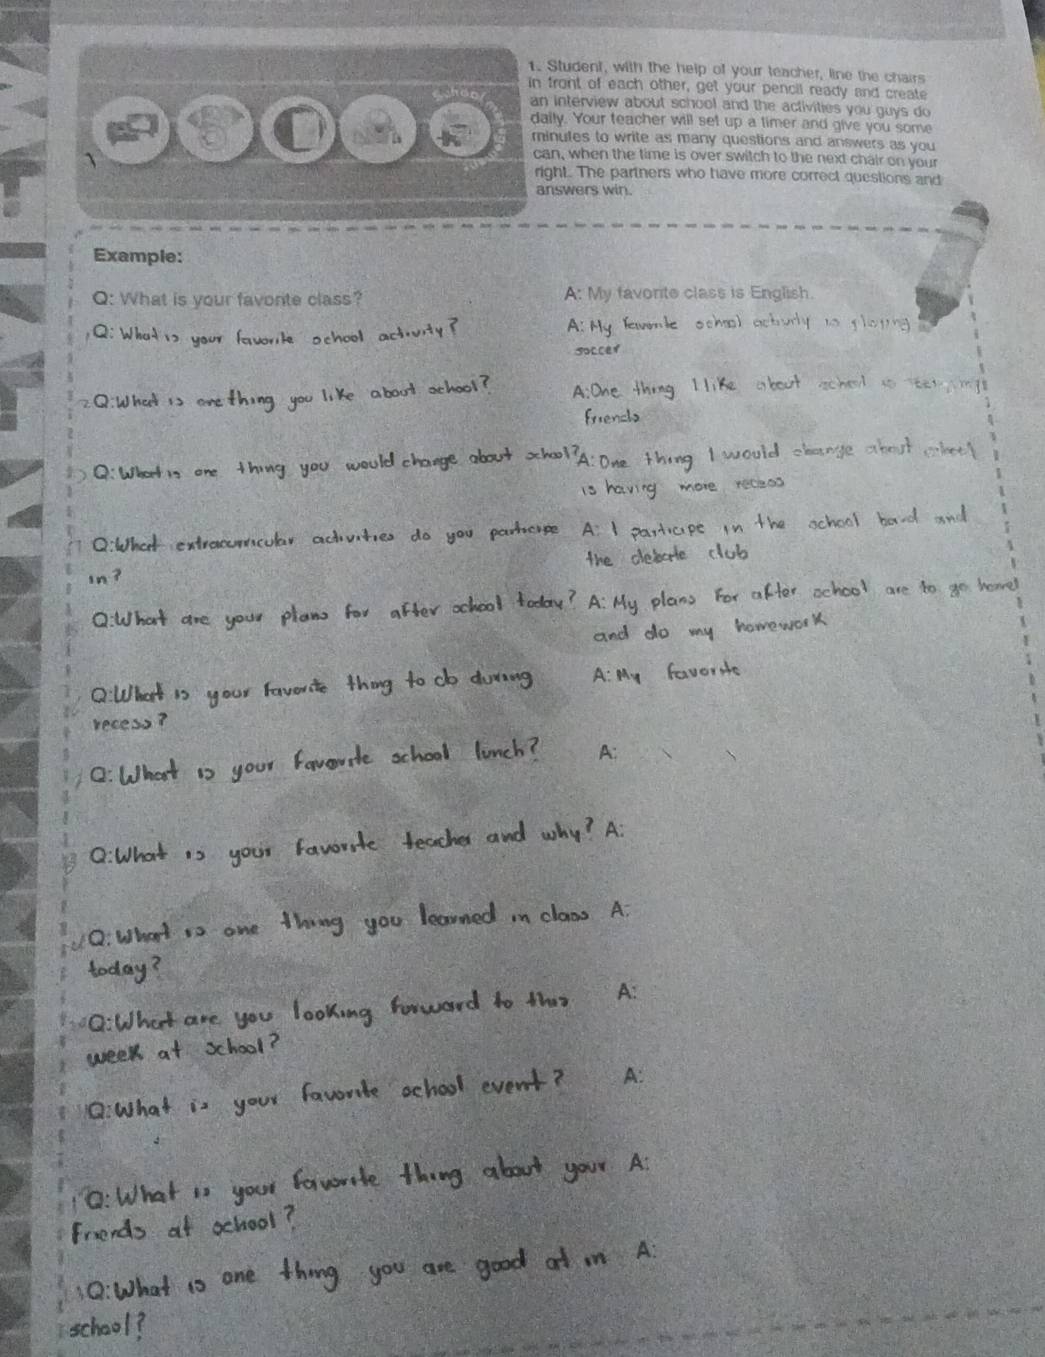 1. Student, with the help of your teacher, line the chairs
in front of each other, get your pencil ready and create
an interview about school and the activities you guys do
daily. Your teacher will set up a timer and give you some
minutes to write as many questions and answers as you
can, when the time is over switch to the next chair on your
right. The partners who have more correct questions and
answers win.
Example:
Q: What is your favorite class?
A: My favorite class is English.
Q: What is your favorite school activity?
A: My favorite school activity is playing
soccer
2 Q: What is one thing you like about school?
A: One thing I like about school is seeing my
friends
Q: What is one thing you would change about school?
A: One thing I would change about school
is having more recess
Q: What extracurricular activities do you participe
in?
A: I participe in the school band and
the debate club
Q: What are your plans for after school today?
A: My plans For after school are to go home
and do my homework
Q: What is your favorite thing to do during
recess?
A: My favorite
Q: What is your favorite school lunch?
A:
Q: What is your favorite teacher and why?
A:
Q: What is one thing you learned in class
today?
A:
Q: What are you looking forward to this
week at school?
A:
Q: What is your favorite school event?
A:
Q: What is your favorite thing about your
friends at school?
A:
Q: What is one thing you are good at in
school?
A: